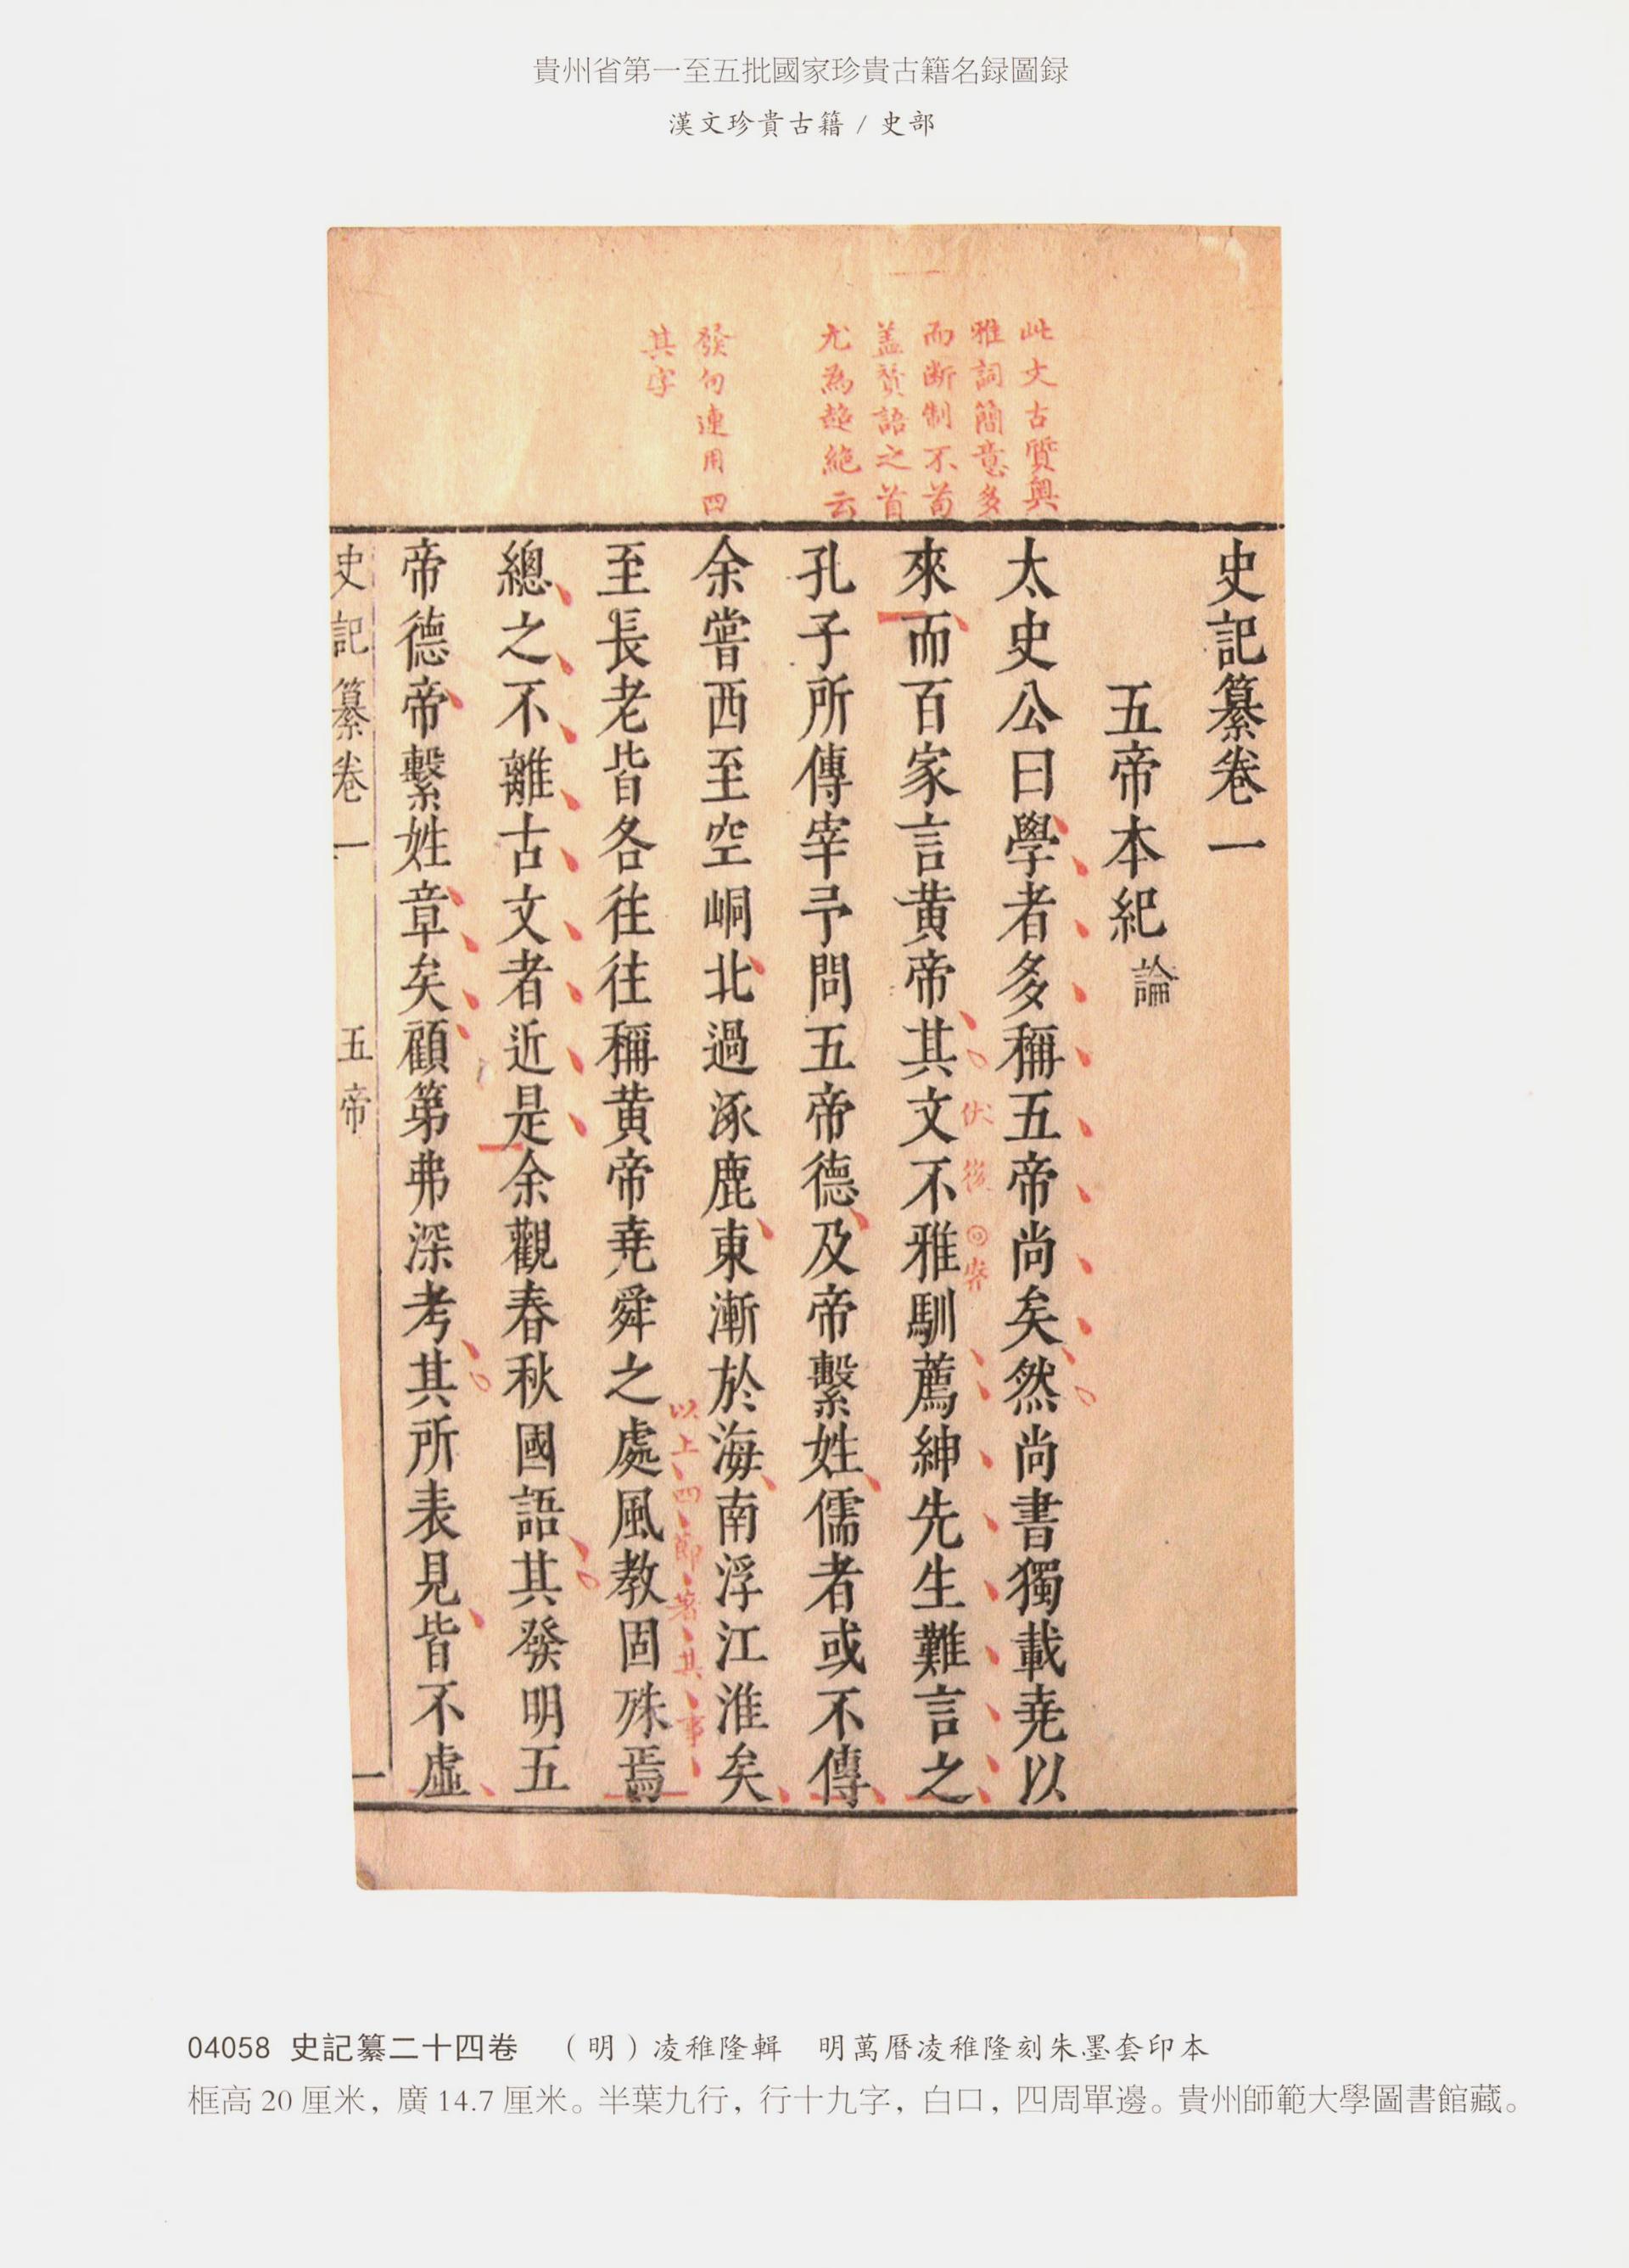 貴州省第一至五批國家珍貴古籍名録圖録
漢文珍貴古籍 / 史部
此文古質奧
雅詞簡意多
而断制不苟
盖贊語之首
尤為超絶云
發句連用四
其字
史記纂卷一
五帝本紀論
太史公曰學者多稱五帝尚矣然尚書獨載堯以
來而百家言黃帝其文不雅馴薦紳先生難言之
伏後回㟁
孔子所傳宰予問五帝德及帝繫姓儒者或不傳
余嘗西至空峒北過涿鹿東漸於海南浮江淮矣
以上四節著其事
至長老皆各往往稱黃帝堯舜之處風教固殊焉
總之不離古文者近是余觀春秋國語其發明五
帝德帝繫姓章矣顧第弗深考其所表見皆不虛
史記纂卷一 五帝 一
04058 史記纂二十四卷 （明）凌稚隆輯 明萬曆凌稚隆刻朱墨套印本
框高 20 厘米，廣 14.7 厘米。半葉九行，行十九字，白口，四周單邊。貴州師範大學圖書館藏。